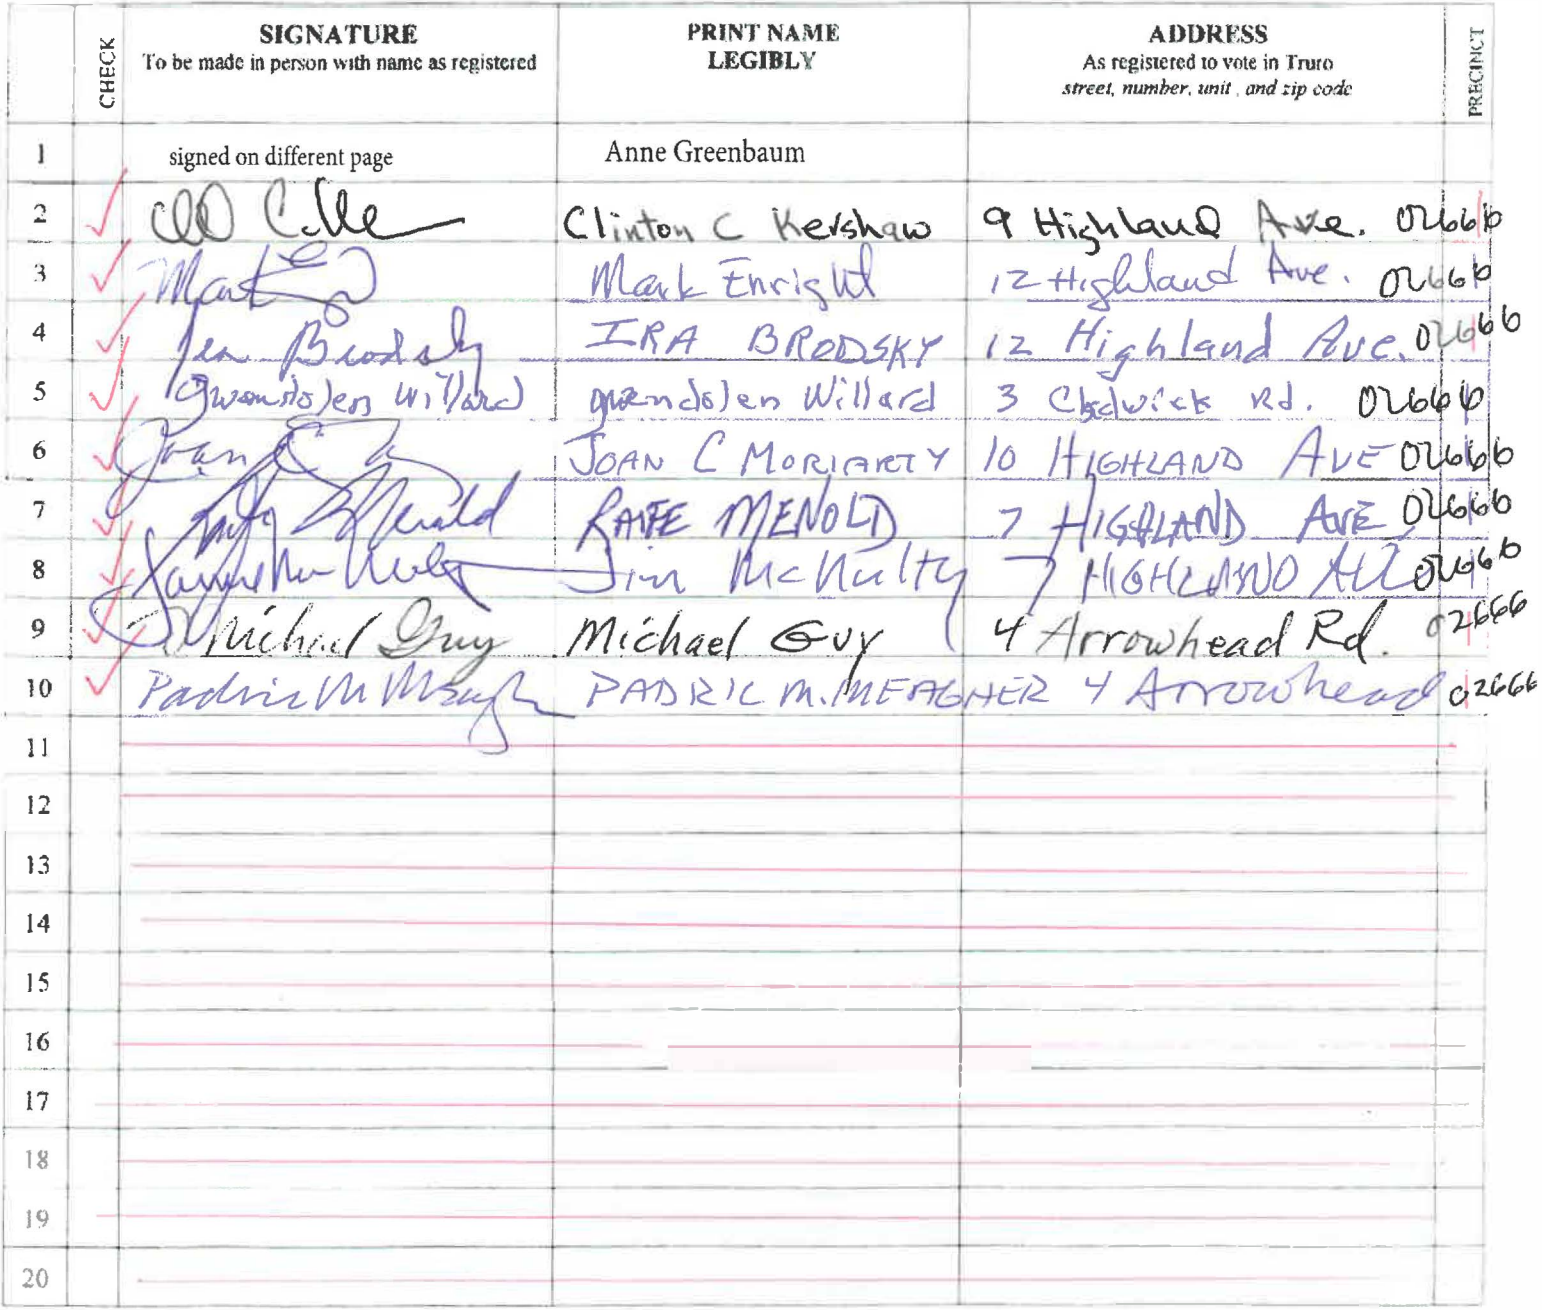 CHECK
SIGNATURE
To be made in person with name as registered
PRINT NAME
LEGIBLY
ADDRESS
As registered to vote in Truro
street, number, unit, and zip code
PRECINCT
1 signed on different page Anne Greenbaum
2 Clinton C Kershaw 9 Highland Ave. 02666
3 Mark Mark Enright 12 Highland Ave. 02666
4 Ira Brodsky IRA BRODSKY 12 Highland Ave. 02666
5 Gwendolen Willard gwendolen Willard 3 Chadwick Rd. 02666
6 Joan C JOAN C MORIARTY 10 HIGHLAND AVE 02666
7 RAIFE MENOLD 7 HIGHLAND AVE 02666
8 Jim McNulty 7 HIGHLAND AVE 02666
9 Michael Guy Michael Guy 4 Arrowhead Rd. 02666
10 Padric M Meagher PADRIC M. MEAGHER 4 Arrowhead 02666
11
12
13
14
15
16
17
18
19
20